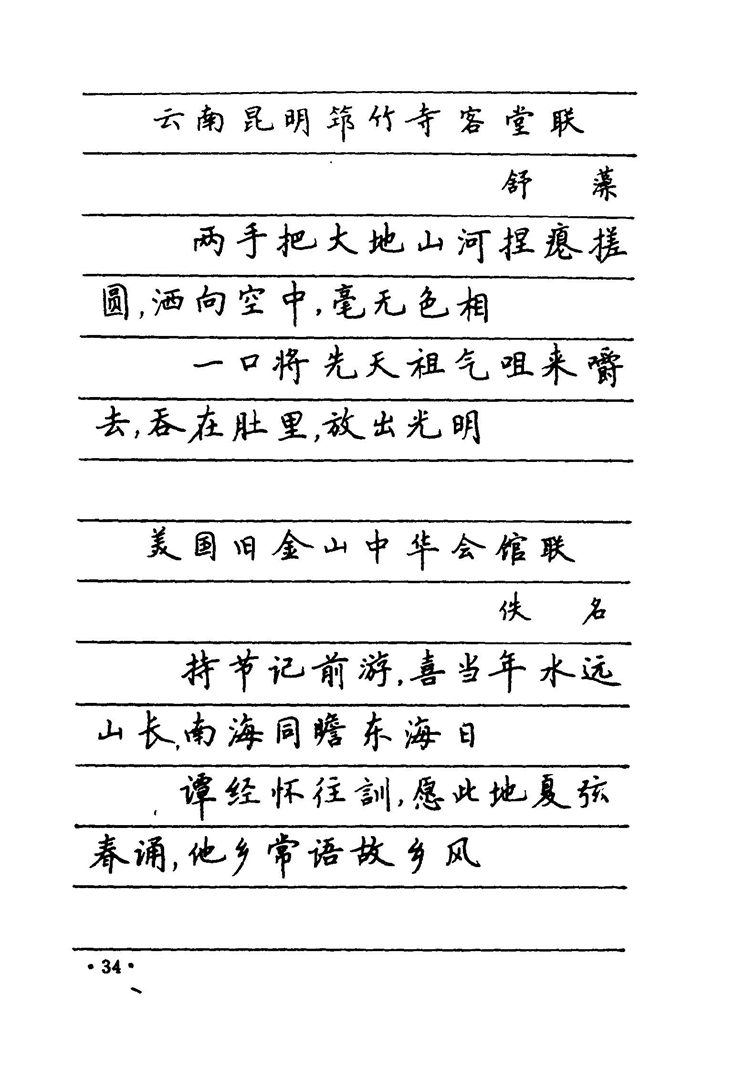 云南昆明筇竹寺客堂联
舒 藻
两手把大地山河捏瘪搓
圆,洒向空中,毫无色相
一口将先天祖气咀来嚼
去,吞在肚里,放出光明
美国旧金山中华会馆联
佚 名
持节记前游,喜当年水远
山长,南海同瞻东海日
谭经怀往訓,愿此地夏弦
春诵,他乡常语故乡风
·34·